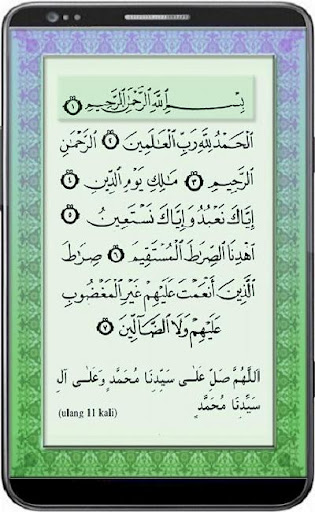 بِسْمِ اللَّهِ الرَّحْمَٰنِ الرَّحِيمِ ١
الْحَمْدُ لِلَّهِ رَبِّ الْعَالَمِينَ ٢ الرَّحْمَٰنِ
الرَّحِيمِ ٣ مَالِكِ يَوْمِ الدِّينِ ٤
إِيَّاكَ نَعْبُدُ وَإِيَّاكَ نَسْتَعِينُ ٥
اهْدِنَا الصِّرَاطَ الْمُسْتَقِيمَ ٦ صِرَاطَ
الَّذِينَ أَنْعَمْتَ عَلَيْهِمْ غَيْرِ الْمَغْضُوبِ
عَلَيْهِمْ وَلَا الضَّالِّينَ ٧
اَللَّهُمَّ صَلِّ عَلَى سَيِّدِنَا مُحَمَّدٍ وَعَلَى آلِ
سَيِّدِنَا مُحَمَّدٍ
(ulang 11 kali)